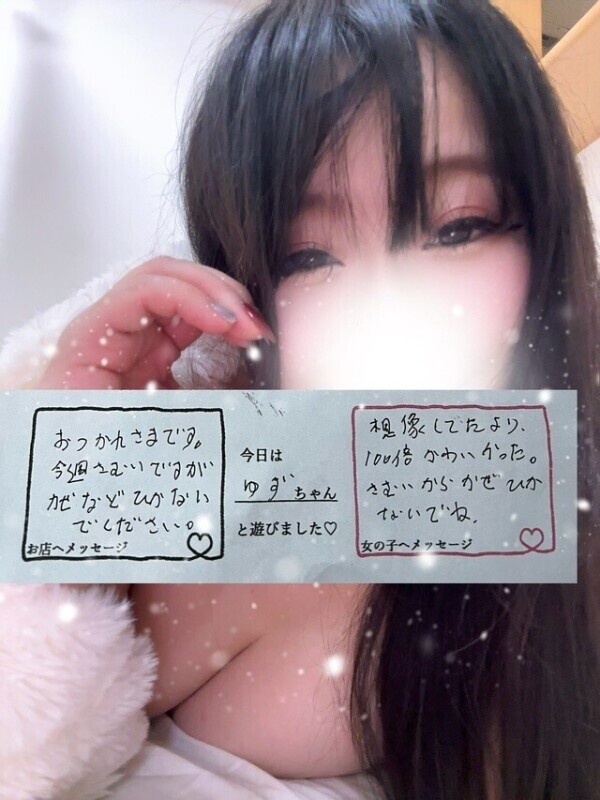 おつかれさまです。
今週さむいですが
かぜなどひかない
でください。
お店へメッセージ
今日は
ゆず ちゃん
と遊びました♡
想像してたより、
100倍かわいかった。
さむいからかぜひか
ないでね。
女の子へメッセージ